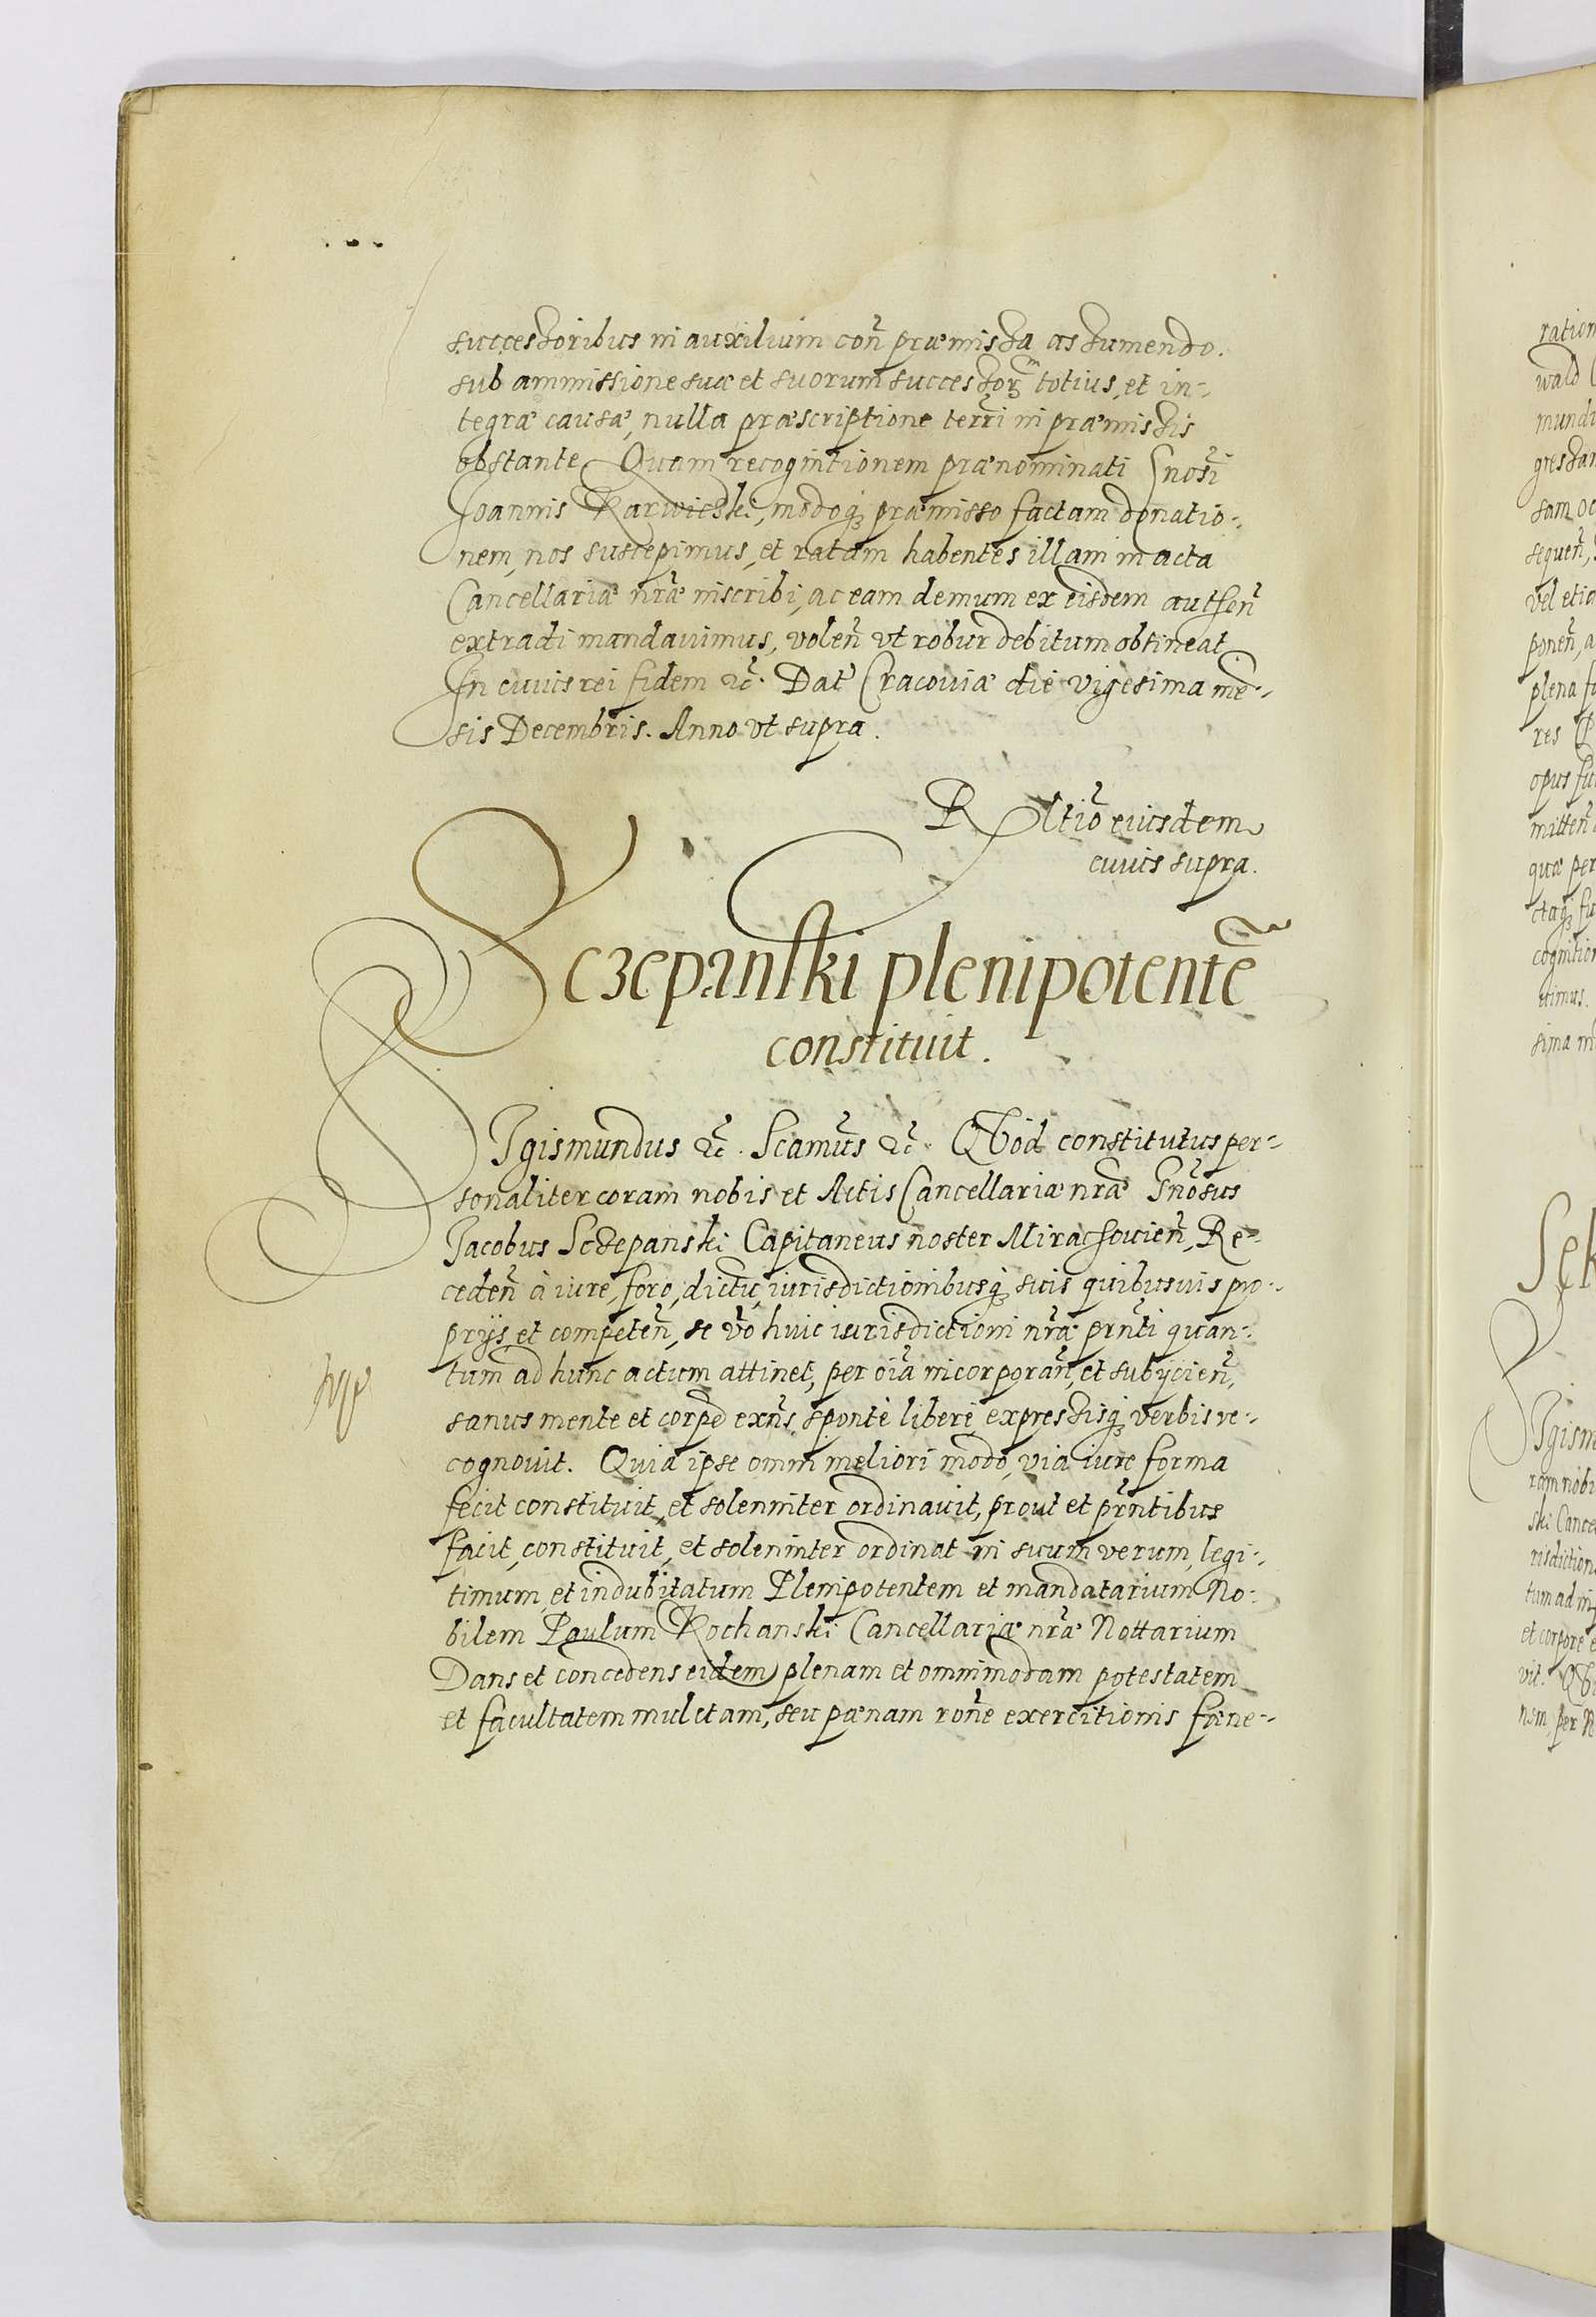 successoribus in auxilium coñ præmissa assumendo.
sub ammissione suæ et suorum successorꝝ totius, et in-
tegræ causæ, nulla præscriptione terrī in præmissis
obstante. Quam recognitionem prænominati Gnosi
Joannis Karwicski, modoq₃ præmisso factam donatio-
nem, nos suscepimus, et ratam habentes illam in acta
Cancellariæ nr̃æ inscribi, ac eam demum ex eisdem authen̄
extradi mandauimus, volen̄ vt robur debitum obtineat
In cuius rei fidem &c̃. Dat̃ Cracouiæ die vigesima mē-
sis Decembris. Anno vt supra.
Rltiõ eiusdem
cuius supra.
Sczepanski plenipotentē
constituit.
SIgismundus &c̃. Scamũs &c̃. Qvod constitutus per-
sonaliter coram nobis et Actis Cancellariæ nr̃æ Gnõsus
Jacobus Sczepanski Capitaneus noster Mirachouien̄, Re-
ceden̄ à iure, foro, dictu, iurisdictionibusq₃ suis quibusuis pro-
prijs et competen̄, se vẽo huic iurisdictioni nr̃æ pr̃nti quan-
tum ad hunc actum attinet, per oĩa incorporan̄, et subijcien̄,
sanus mente et corpẽ exñs, sponte libere, expressisq₃ verbis re-
cognouit. Quia ipse omni meliori modo, via iure forma
fecit constituit, et solenniter ordinauit, prout et pr̃ntibus
facit, constituit, et solenniter ordinat in suum verum, legi-
timum, et indubitatum Plenipotentem et mandatarium No-
bilem Paulum Kochanski Cancellariæ nr̃æ Nottarium
Dans et concedens eidem plenam et omnimodam potestatem
et facultatem mulctam, seu pænam rõne exercitionis fune-